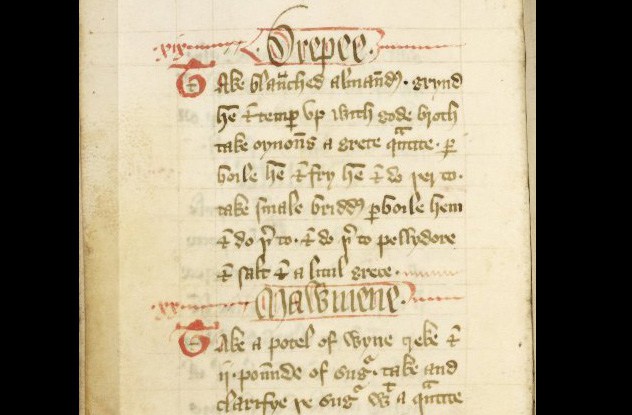 .xix. Drepee.
Take blanched almandes. grynd
hem & temper up with gode broth
take oynouns a grete quantite. per
boile hem & fry hem & do þerto.
take smale briddes perboile hem
& do þerto. & do þerto pellydore
& salt & a litul grece.
.xx. Mawmene.
Take a potel of wyne greke &
ii. pounde of sugur. take and
clarifye þe sugur with a quantite